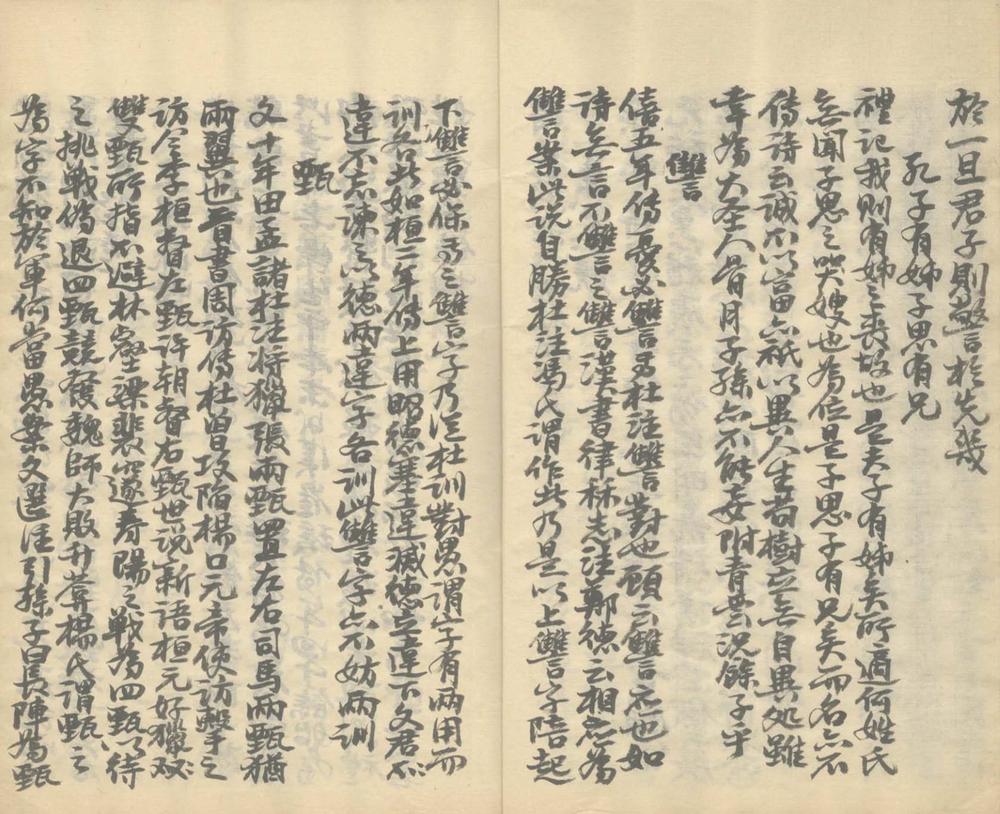 於一旦君子則警於先幾
孔子有姊子思有兄
禮記我則有姊之喪故也是夫子有姊矣所適何姓氏
無聞子思之哭嫂也為位是子思子有兄矣而名亦不
傳詩云誠不以富亦祇以異人生若樹立無自異處雖
幸為大圣人骨月子孫亦不能妄附青雲況餘子乎
讎
僖五年傳憂必讎焉杜注讎對也顧云讎言應也如
詩無言不讎之讎漢書律秝志注鄭德云相應為
讎案此說自勝杜注馮氏謂作此乃是以上讎字陪起
下讎必保焉之讎字乃從杜訓對愚謂字有兩用而
訓各如桓二年傳上用昭德塞違滅德立違下文君
違不忘諫之以德兩違字各訓此讎字亦不妨兩訓
甄
文十年田孟諸杜注將獵張兩甄置左右司馬兩甄猶
兩翼也晉書周訪傳杜曾攻陷楊口元帝使訪擊之
訪令李桓督左甄許朝督右甄世說新語桓元好獵雙
雙甄所指不避林壑梁裴邃壽陽之戰為四甄以待
之挑戰偽退四甄競發魏師大敗升菴楊氏謂甄之
為字不知於軍何當愚案文選注引孫子曰長陣為甄